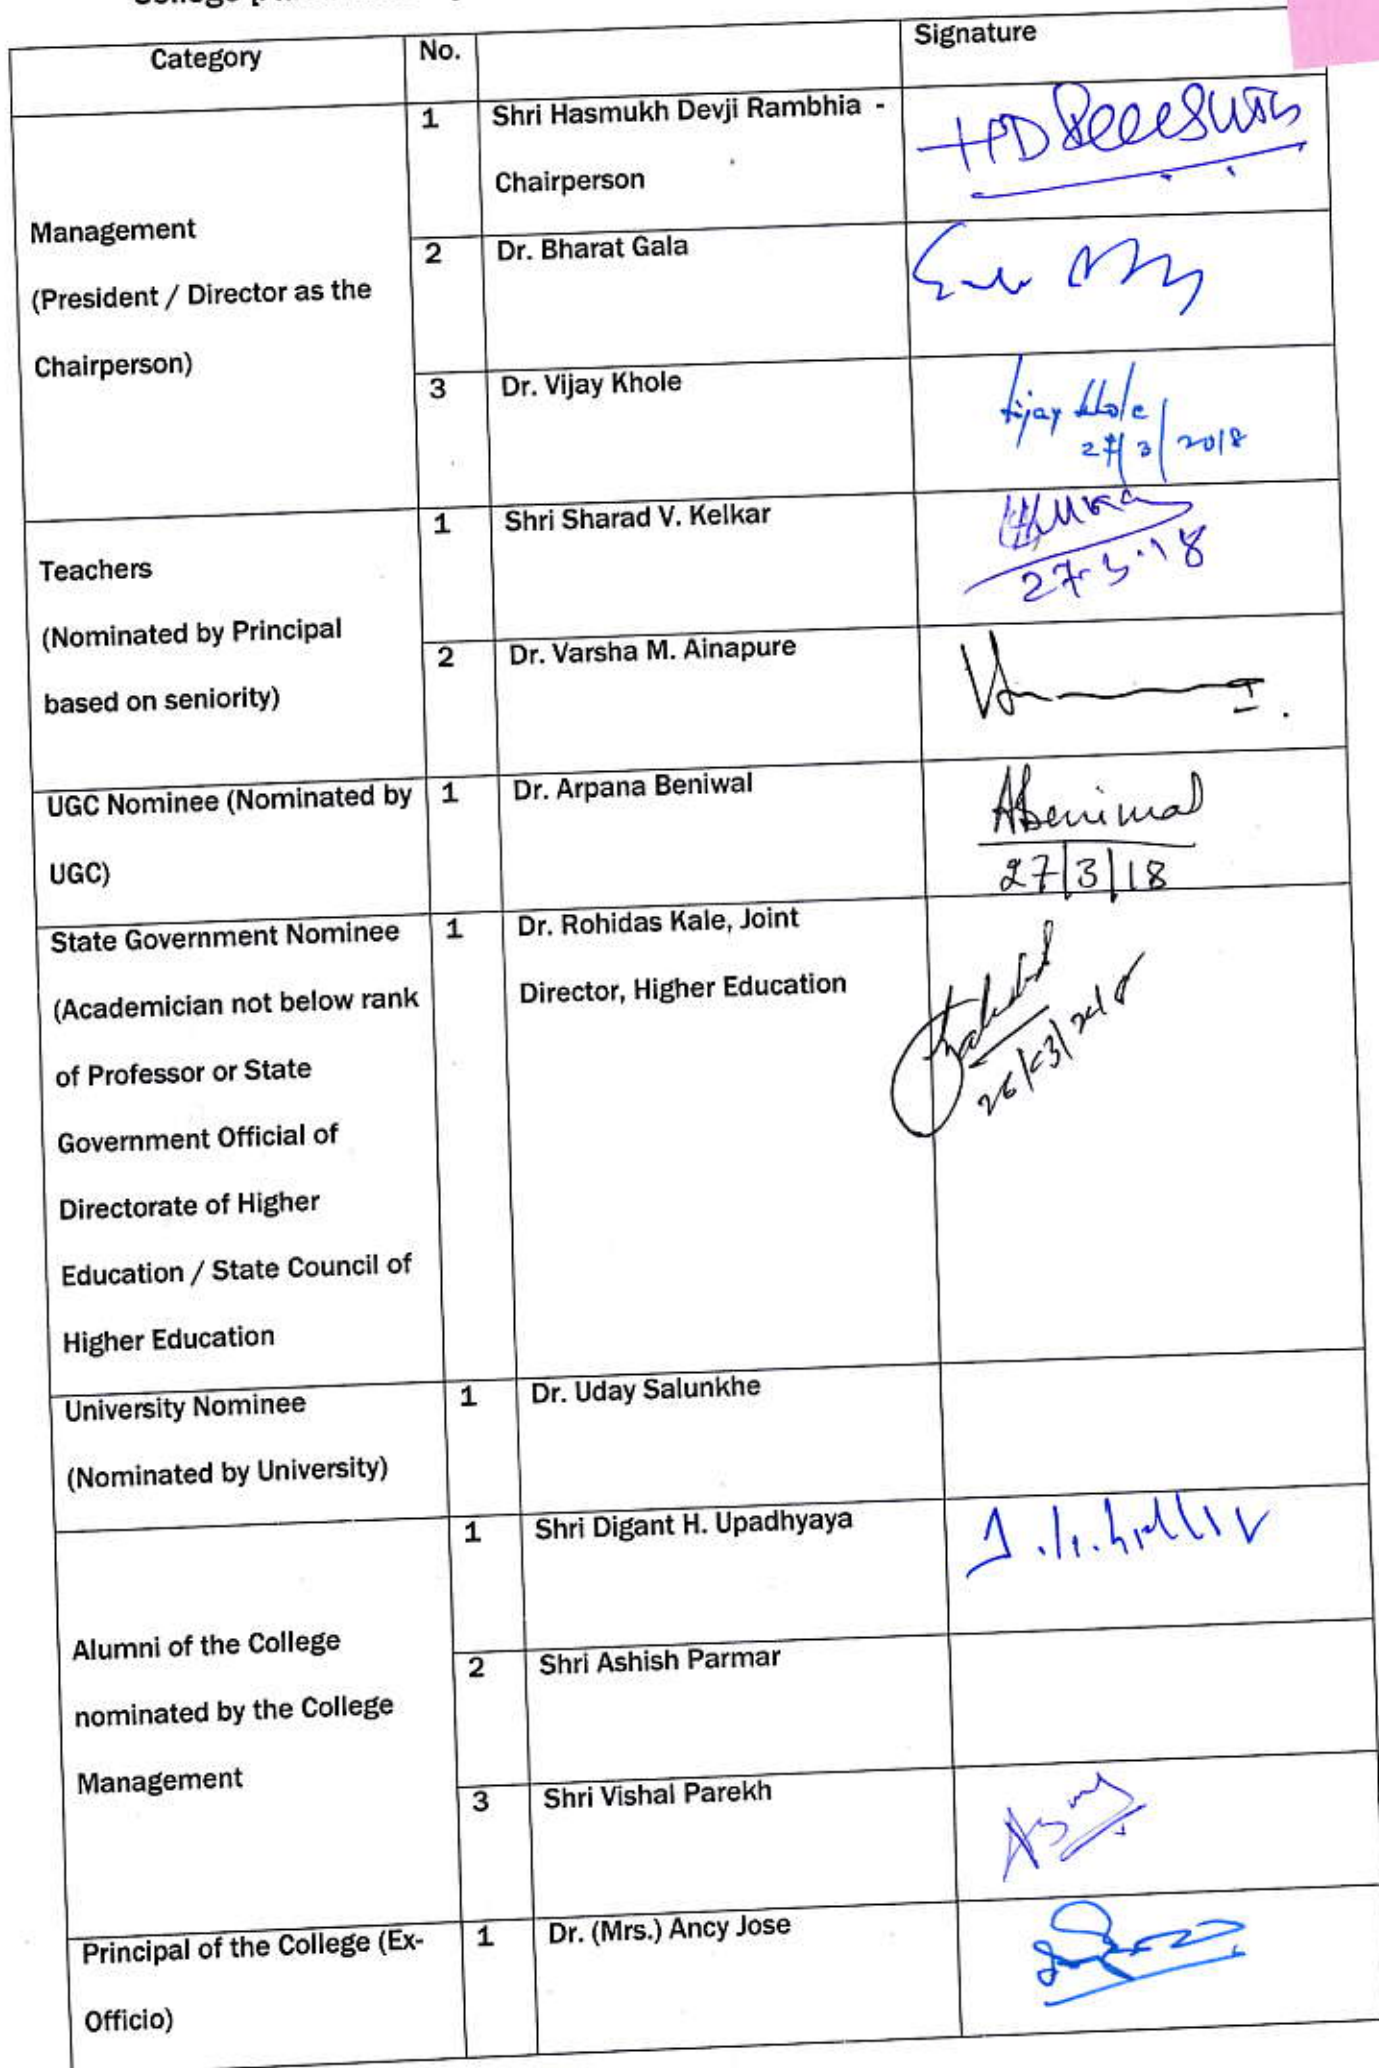 Category No. Signature
1 Shri Hasmukh Devji Rambhia -
Chairperson
Management
(President / Director as the
Chairperson)
2 Dr. Bharat Gala
3 Dr. Vijay Khole
Vijay Khole
27/3/2018
Teachers
(Nominated by Principal
based on seniority)
1 Shri Sharad V. Kelkar
27.3.18
2 Dr. Varsha M. Ainapure
UGC Nominee (Nominated by
UGC)
1 Dr. Arpana Beniwal
ABeniwal
27/3/18
State Government Nominee
(Academician not below rank
of Professor or State
Government Official of
Directorate of Higher
Education / State Council of
Higher Education
1 Dr. Rohidas Kale, Joint
Director, Higher Education
University Nominee
(Nominated by University)
1 Dr. Uday Salunkhe
Alumni of the College
nominated by the College
Management
1 Shri Digant H. Upadhyaya
2 Shri Ashish Parmar
3 Shri Vishal Parekh
Principal of the College (Ex-
Officio)
1 Dr. (Mrs.) Ancy Jose